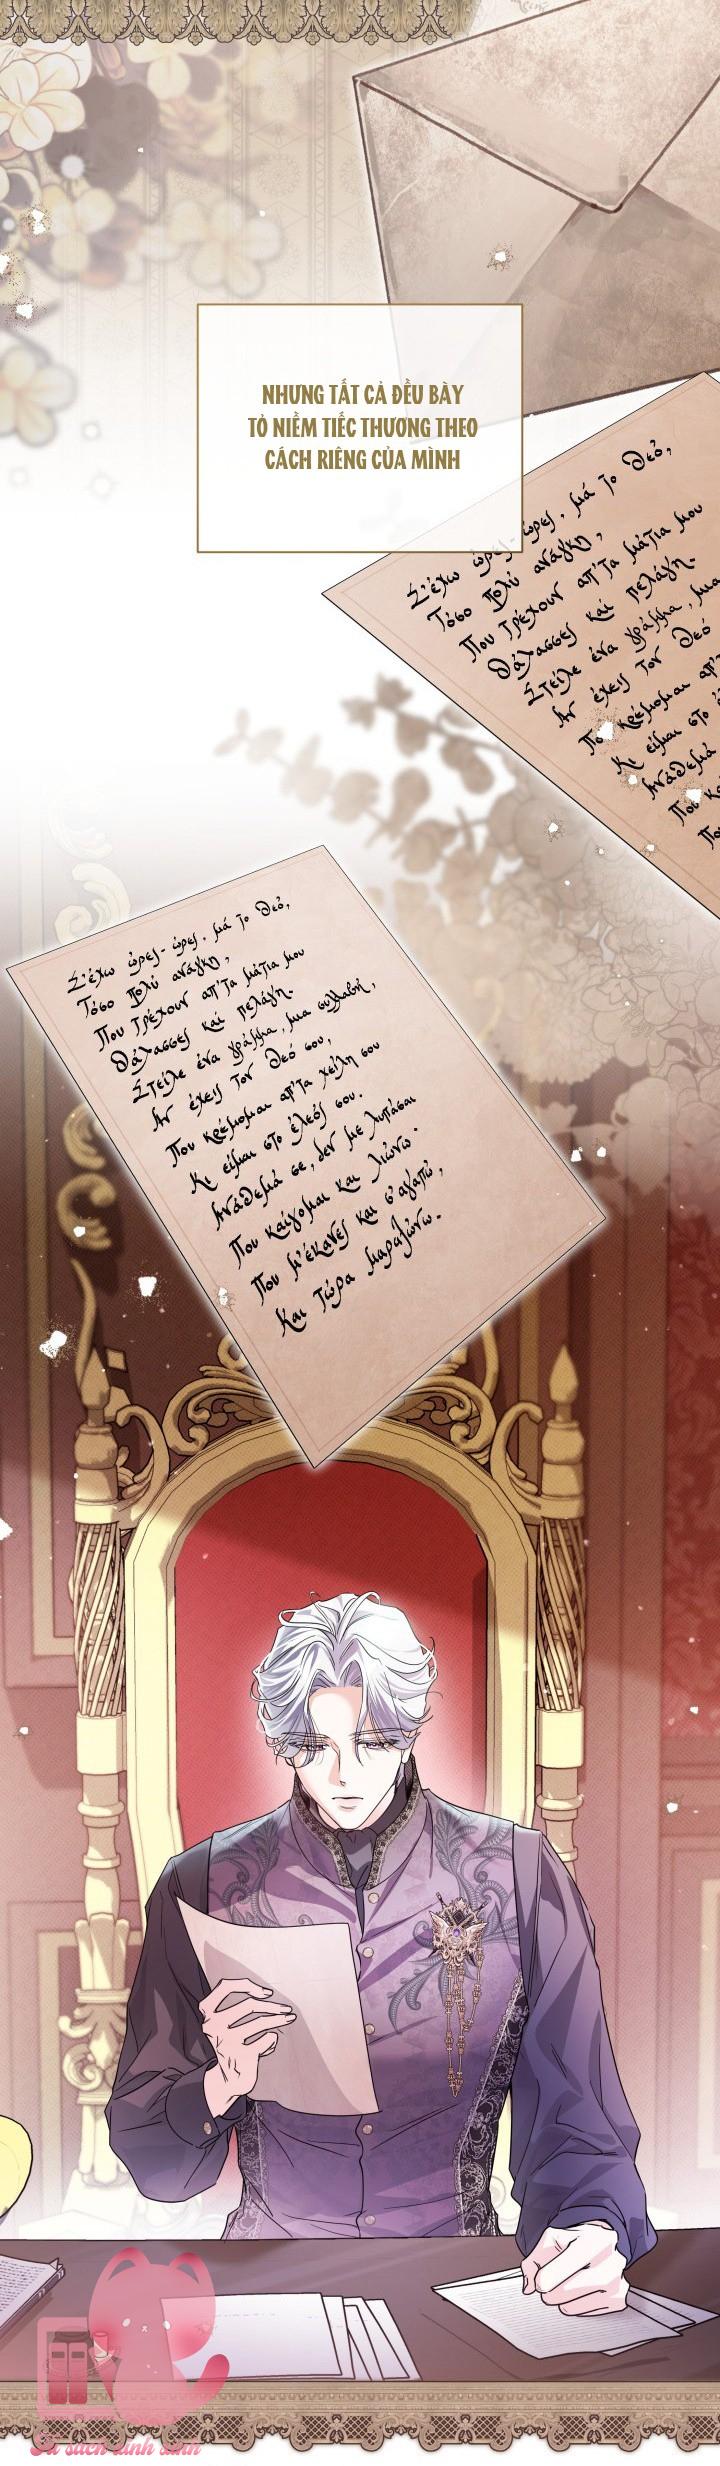 NHƯNG TẤT CẢ ĐỀU BÀY
TỎ NIỀM TIẾC THƯƠNG THEO
CÁCH RIÊNG CỦA MÌNH
Σ' έχω ώρες - ώρες, μά το Θεό,
Τόσο πολύ ανάγκη,
Που τρέχουν απ' τα μάτια μου
Θάλασσες και πελάγη.
Στείλε ένα γράμμα, μια
Αν έχεις τον Θεό
Που κρέμομαι απ' τ
Κι είμαι στο
Ανάθεμά
Που κα
Που
Σ' έχω ώρες - ώρες, μά το Θεό,
Τόσο πολύ ανάγκη,
Που τρέχουν απ' τα μάτια μου
Θάλασσες και πελάγη.
Στείλε ένα γράμμα, μια συλλαβή,
Αν έχεις τον Θεό σου,
Που κρέμομαι απ' τα χείλη σου
Κι είμαι στο έλεός σου.
Ανάθεμά σε, δεν με λυπάσαι
Που καίγομαι και λιώνω.
Που μ' έκανες και σ' αγαπώ,
Και τώρα μαραζώνω.
Tủ sách xinh xinh